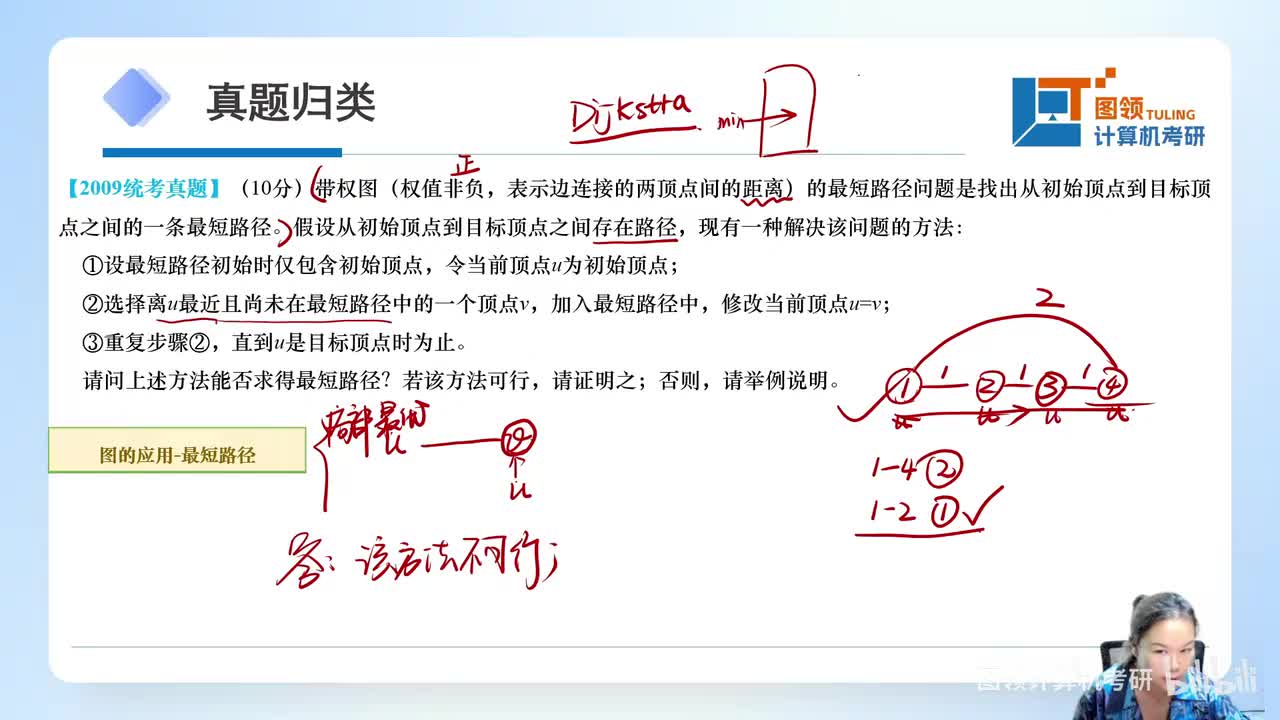 真题归类
Dijkstra
min
图领TULING
计算机考研
正
【2009统考真题】（10分）带权图（权值非负，表示边连接的两顶点间的距离）的最短路径问题是找出从初始顶点到目标顶
点之间的一条最短路径。假设从初始顶点到目标顶点之间存在路径，现有一种解决该问题的方法：
①设最短路径初始时仅包含初始顶点，令当前顶点u为初始顶点；
②选择离u最近且尚未在最短路径中的一个顶点v，加入最短路径中，修改当前顶点u=v；
③重复步骤②，直到u是目标顶点时为止。
请问上述方法能否求得最短路径？若该方法可行，请证明之；否则，请举例说明。
2
1 1 1
① ② ③ ④
u u u u
图的应用-最短路径
u
u
1-4 ②
1-2 ①
答：该方法不可行；
图领计算机考研 bilibili